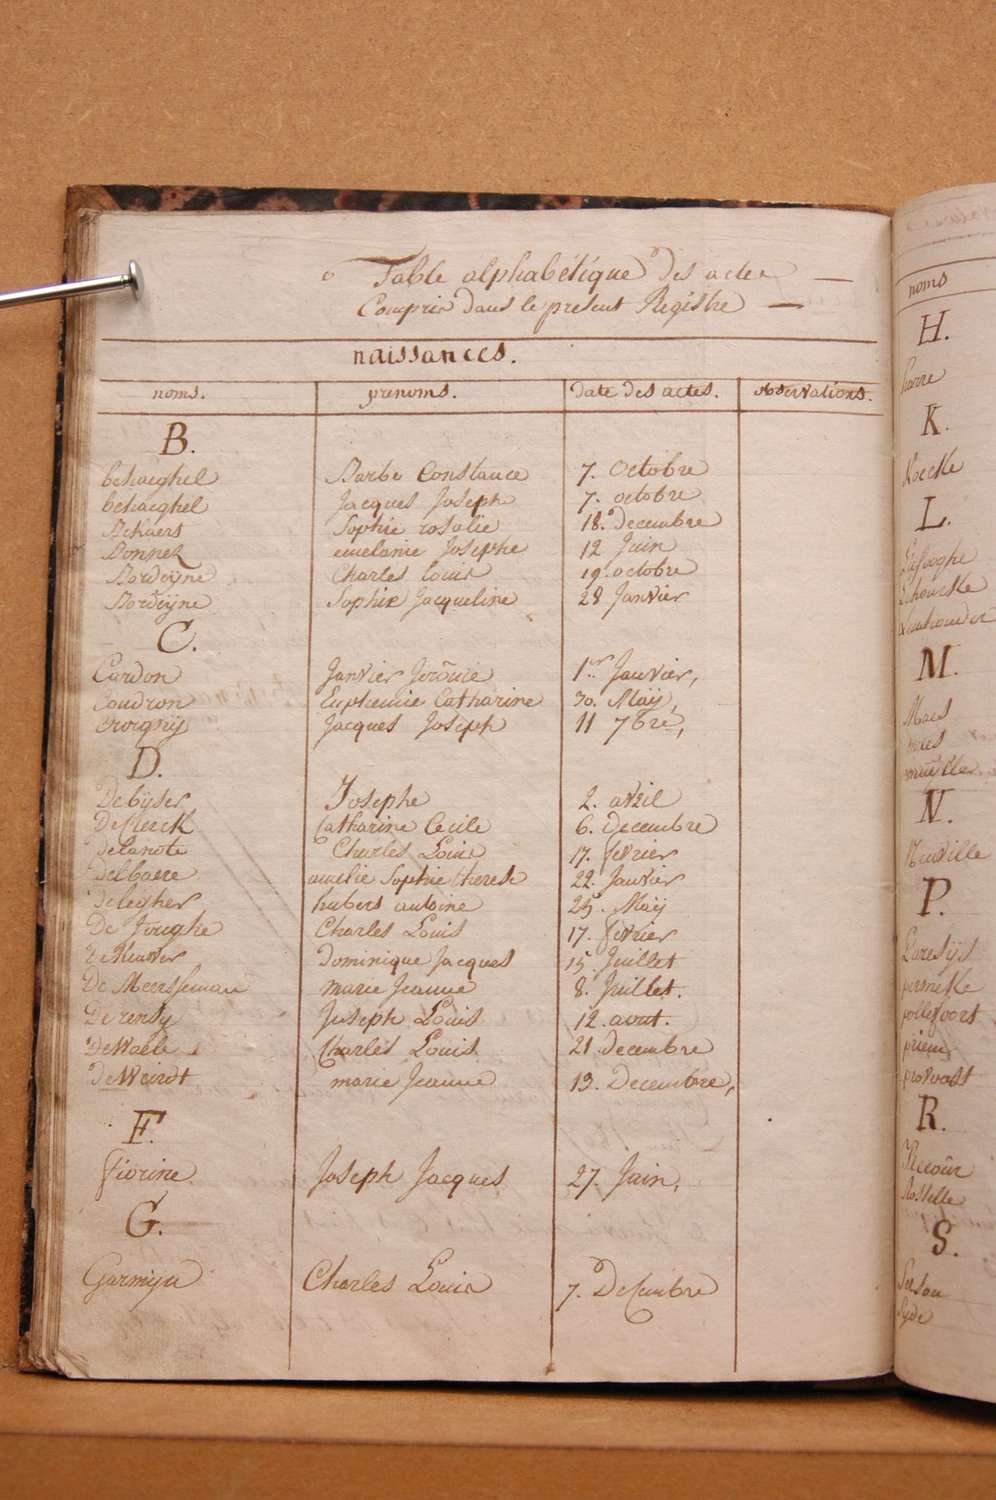 Table alphabétique des actes
Compris dans le présent Registre
naissances.
noms. prenoms. date des actes. observations.
B.
behaeghel Barbe Constance 7. octobre
behaeghel Jacques Joseph 7. octobre
Bekaers Sophie rosalie 18. decembre
Bonnez emelanie Josephe 12 Juin
Bordeÿne Charles Louis 19. octobre
Bordeÿne Sophie Jacqueline 28 Janvier
C.
Cardon Janvier Jerôme 1er Janvier,
Coudron Euphemie Catharine 30. Maÿ,
Jacques Joseph 11 7bre,
D.
Debÿser Josephe 2. avril
DeClerck Catharine Cecile 6. Decembre
Delanote Charles Louis 17. fevrier
Delbaere amelie Sophie therese 22. Janvier
Delegher hubert antoine 25. Maÿ
De Jonghe Charles Louis 17. fevrier
Dominique Jacques 15 Juillet
De Meersseman marie Jeanne 8. Juillet.
Derensy Joseph Louis 12. aout.
DeWaele Charles Louis 21 decembre
DeWeirdt marie Jeanne 13. Decembre,
F.
fiorine Joseph Jacques 27. Juin,
G.
Garmijn Charles Louis 7. Decembre
noms
H.
K.
L.
M.
Maes
maes
N.
Neuville
P.
pollefoort
provost
R.
S.